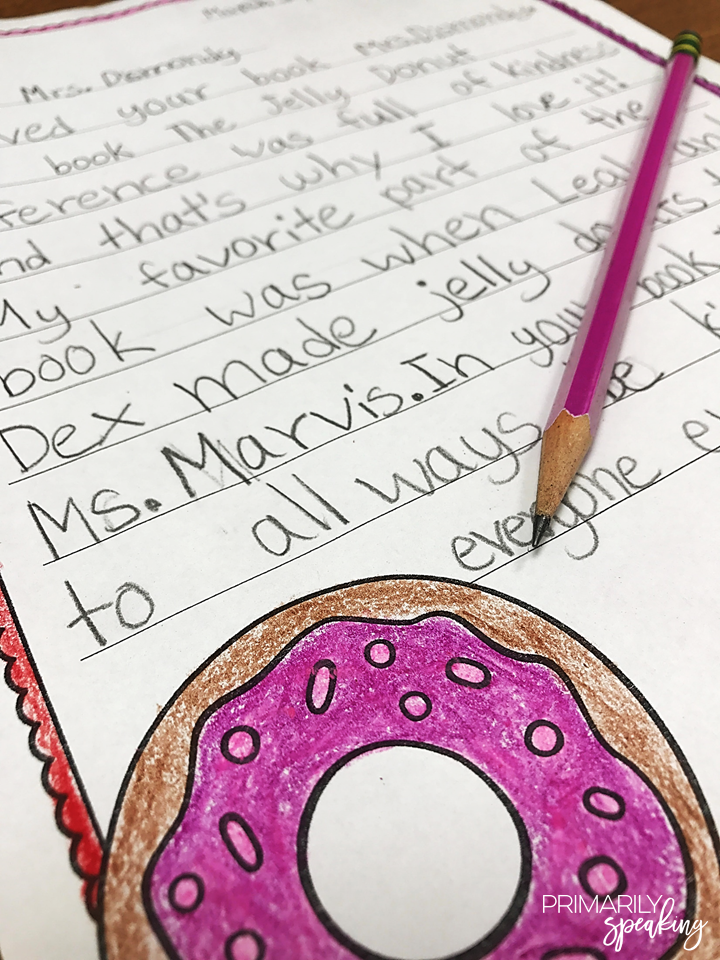 Mrs. Dsmondy
ved your book Mrs.Dsmondy
book The Jelly Donut
ference was full of kindness
nd that's why I love it!
My favorite part of the
book was when Leah an
Dex made jelly do
Ms. Marvis.In you book
to all ways be ki
everyone e
PRIMARILY
speaking